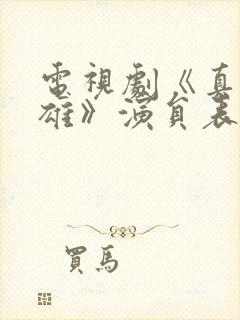 電視劇《真
雄》演員表
買馬